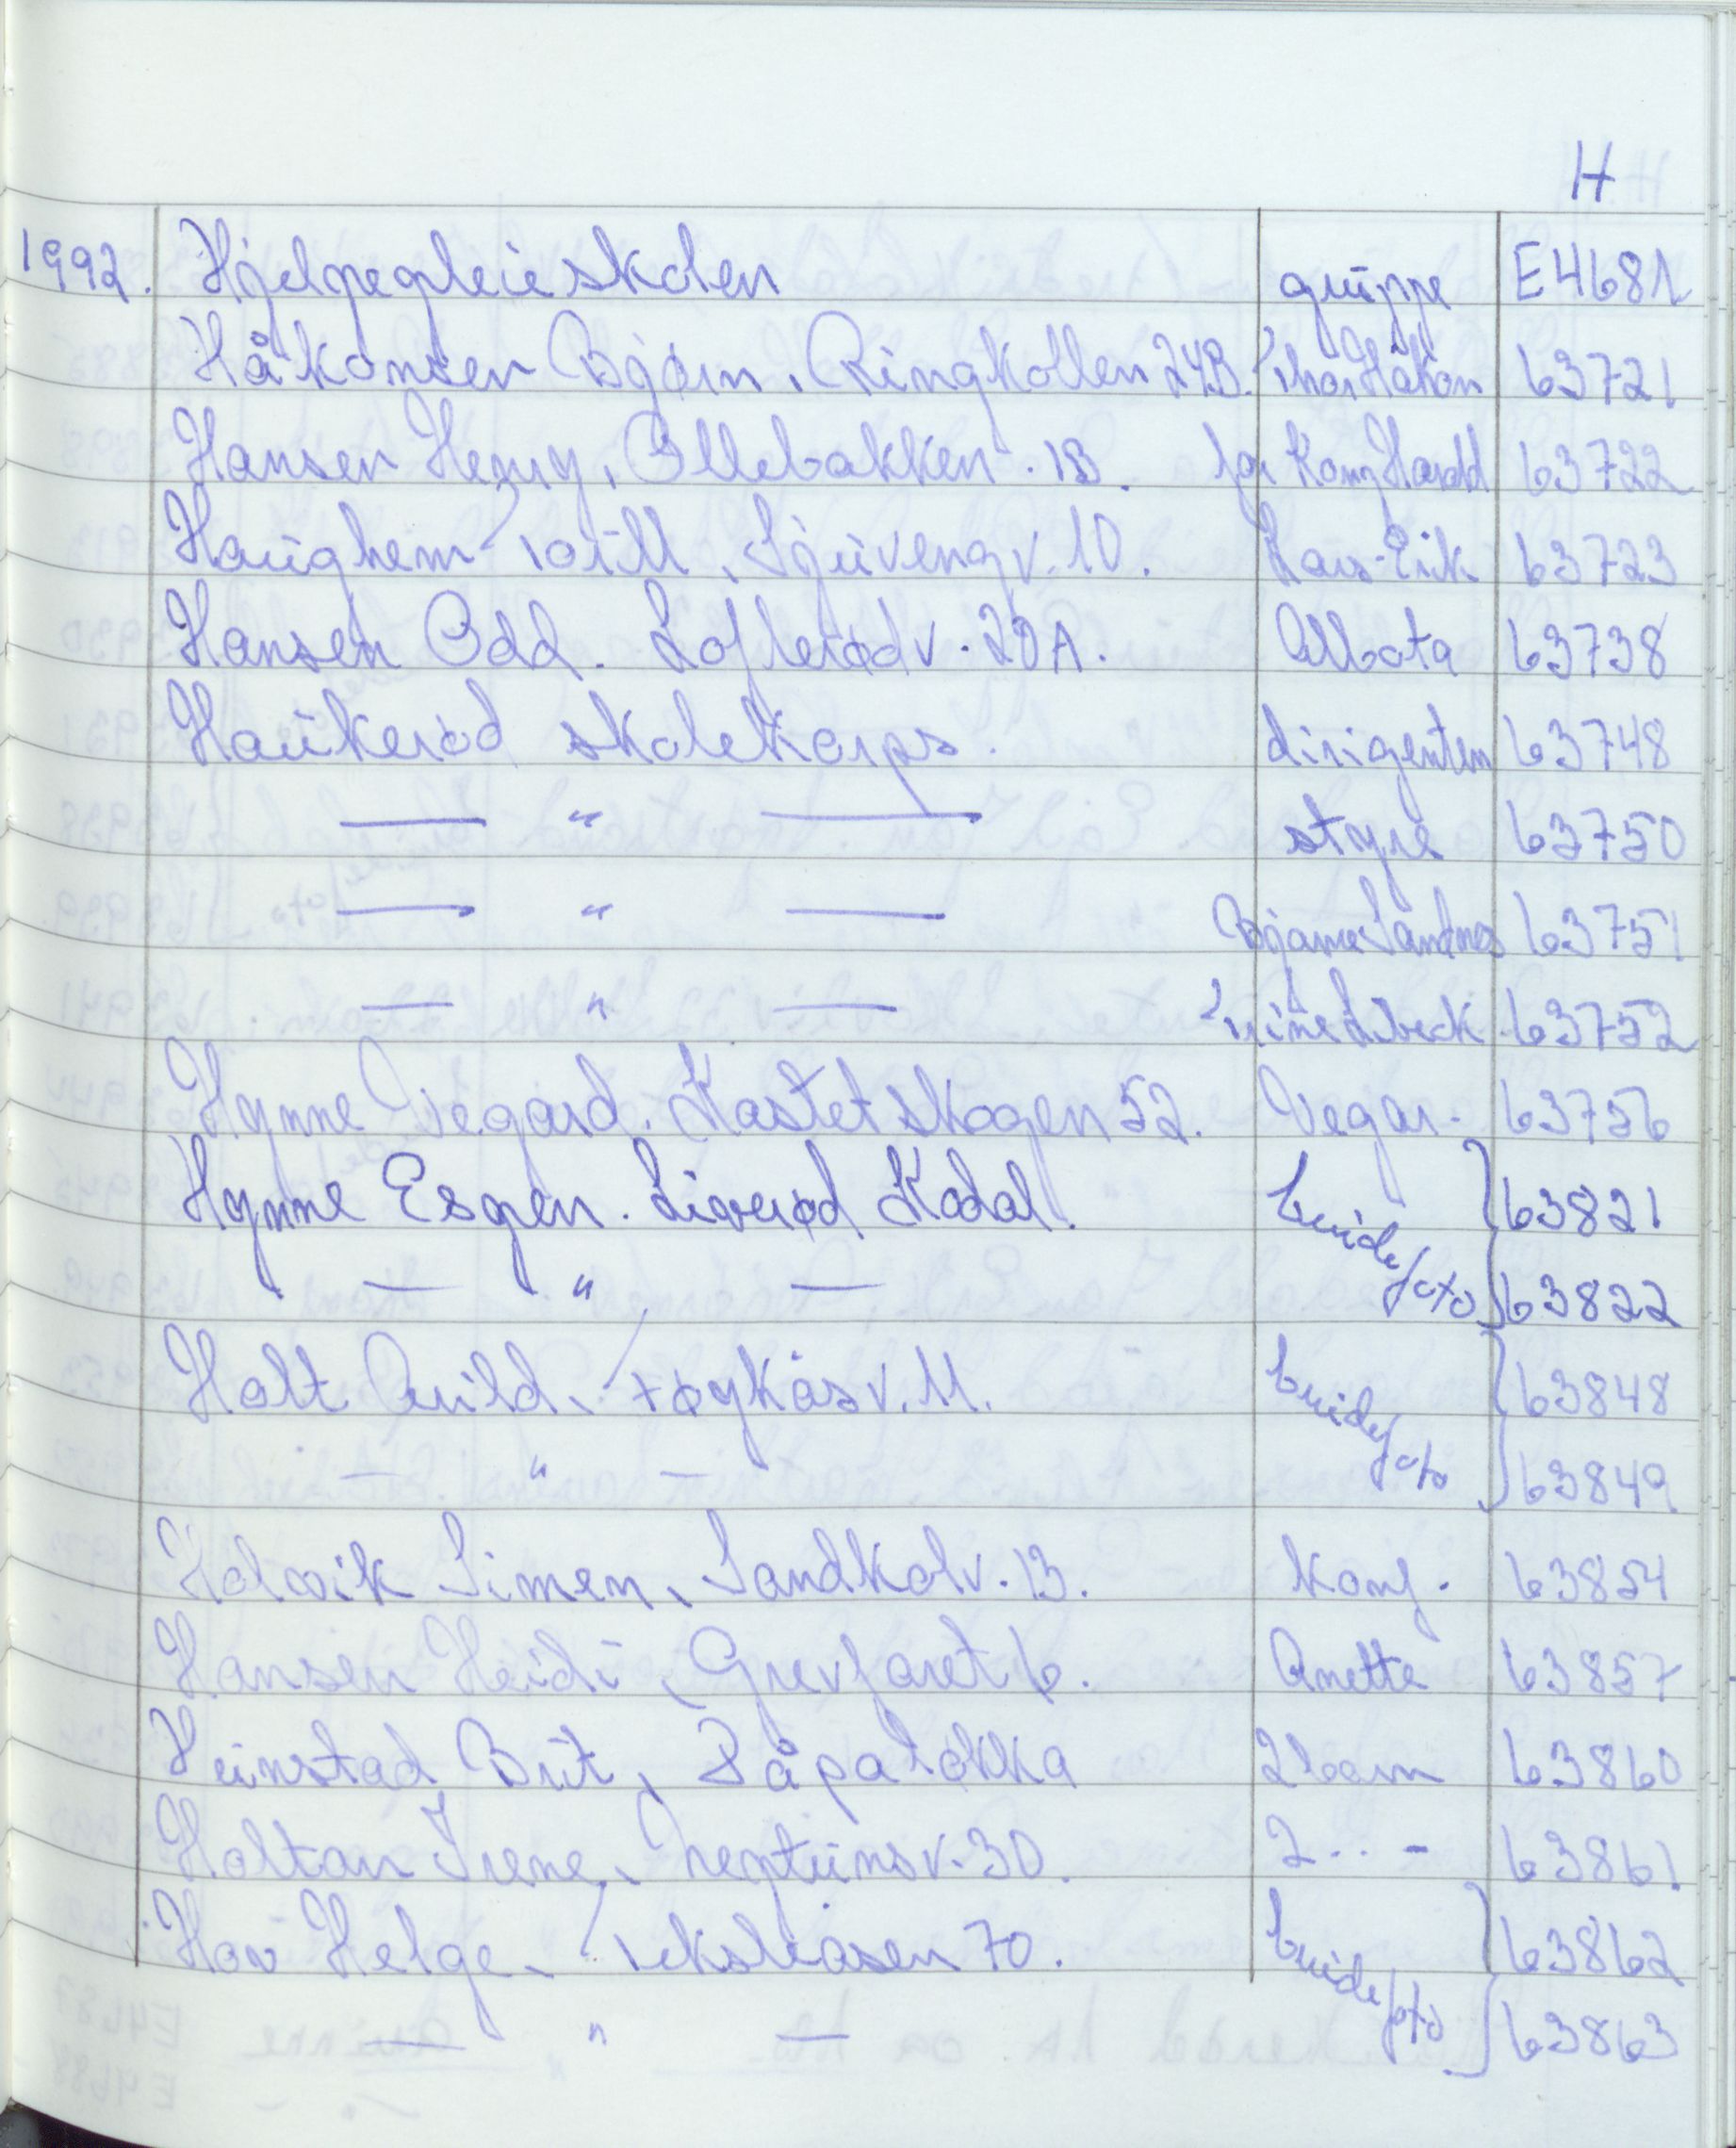 H
1992. Hjelpepleieskolen gruppe E4681
Håkonsen Bjørn, Ringkollen 24B. Thor Håkon 63721
Hansen Henry, Ollebakken 1B. for Konf Harald 63722
Haughem Torill, Sjuvengv. 10. Lars-Erik 63723
Hansen Odd. Lofterødv. 20A. Albota 63738
Haukerød skolekorps. dirigenten 63748
— " — styre 63750
— " — Bjarne Sandnes 63751
— " — Trine 63752
Hynne Vegard. Kastetskogen 52. Vegar. 63756
Hynne Espen. Liverød Kodal. brude 63821
— " — foto 63822
Holt Arild, Høykåsv. 11. brude 63848
— " — foto 63849
Holvik Simen, Sandkolv. 13. Konf. 63854
Hansen Heidi, Grevfaret 6. Anette 63857
Heimstad Brit, Råpaløkka 2 barn 63860
Holtan Irene, Neptunsv. 30. 2 .. - 63861
Hov Helge, 70. brude 63862
— " — foto 63863